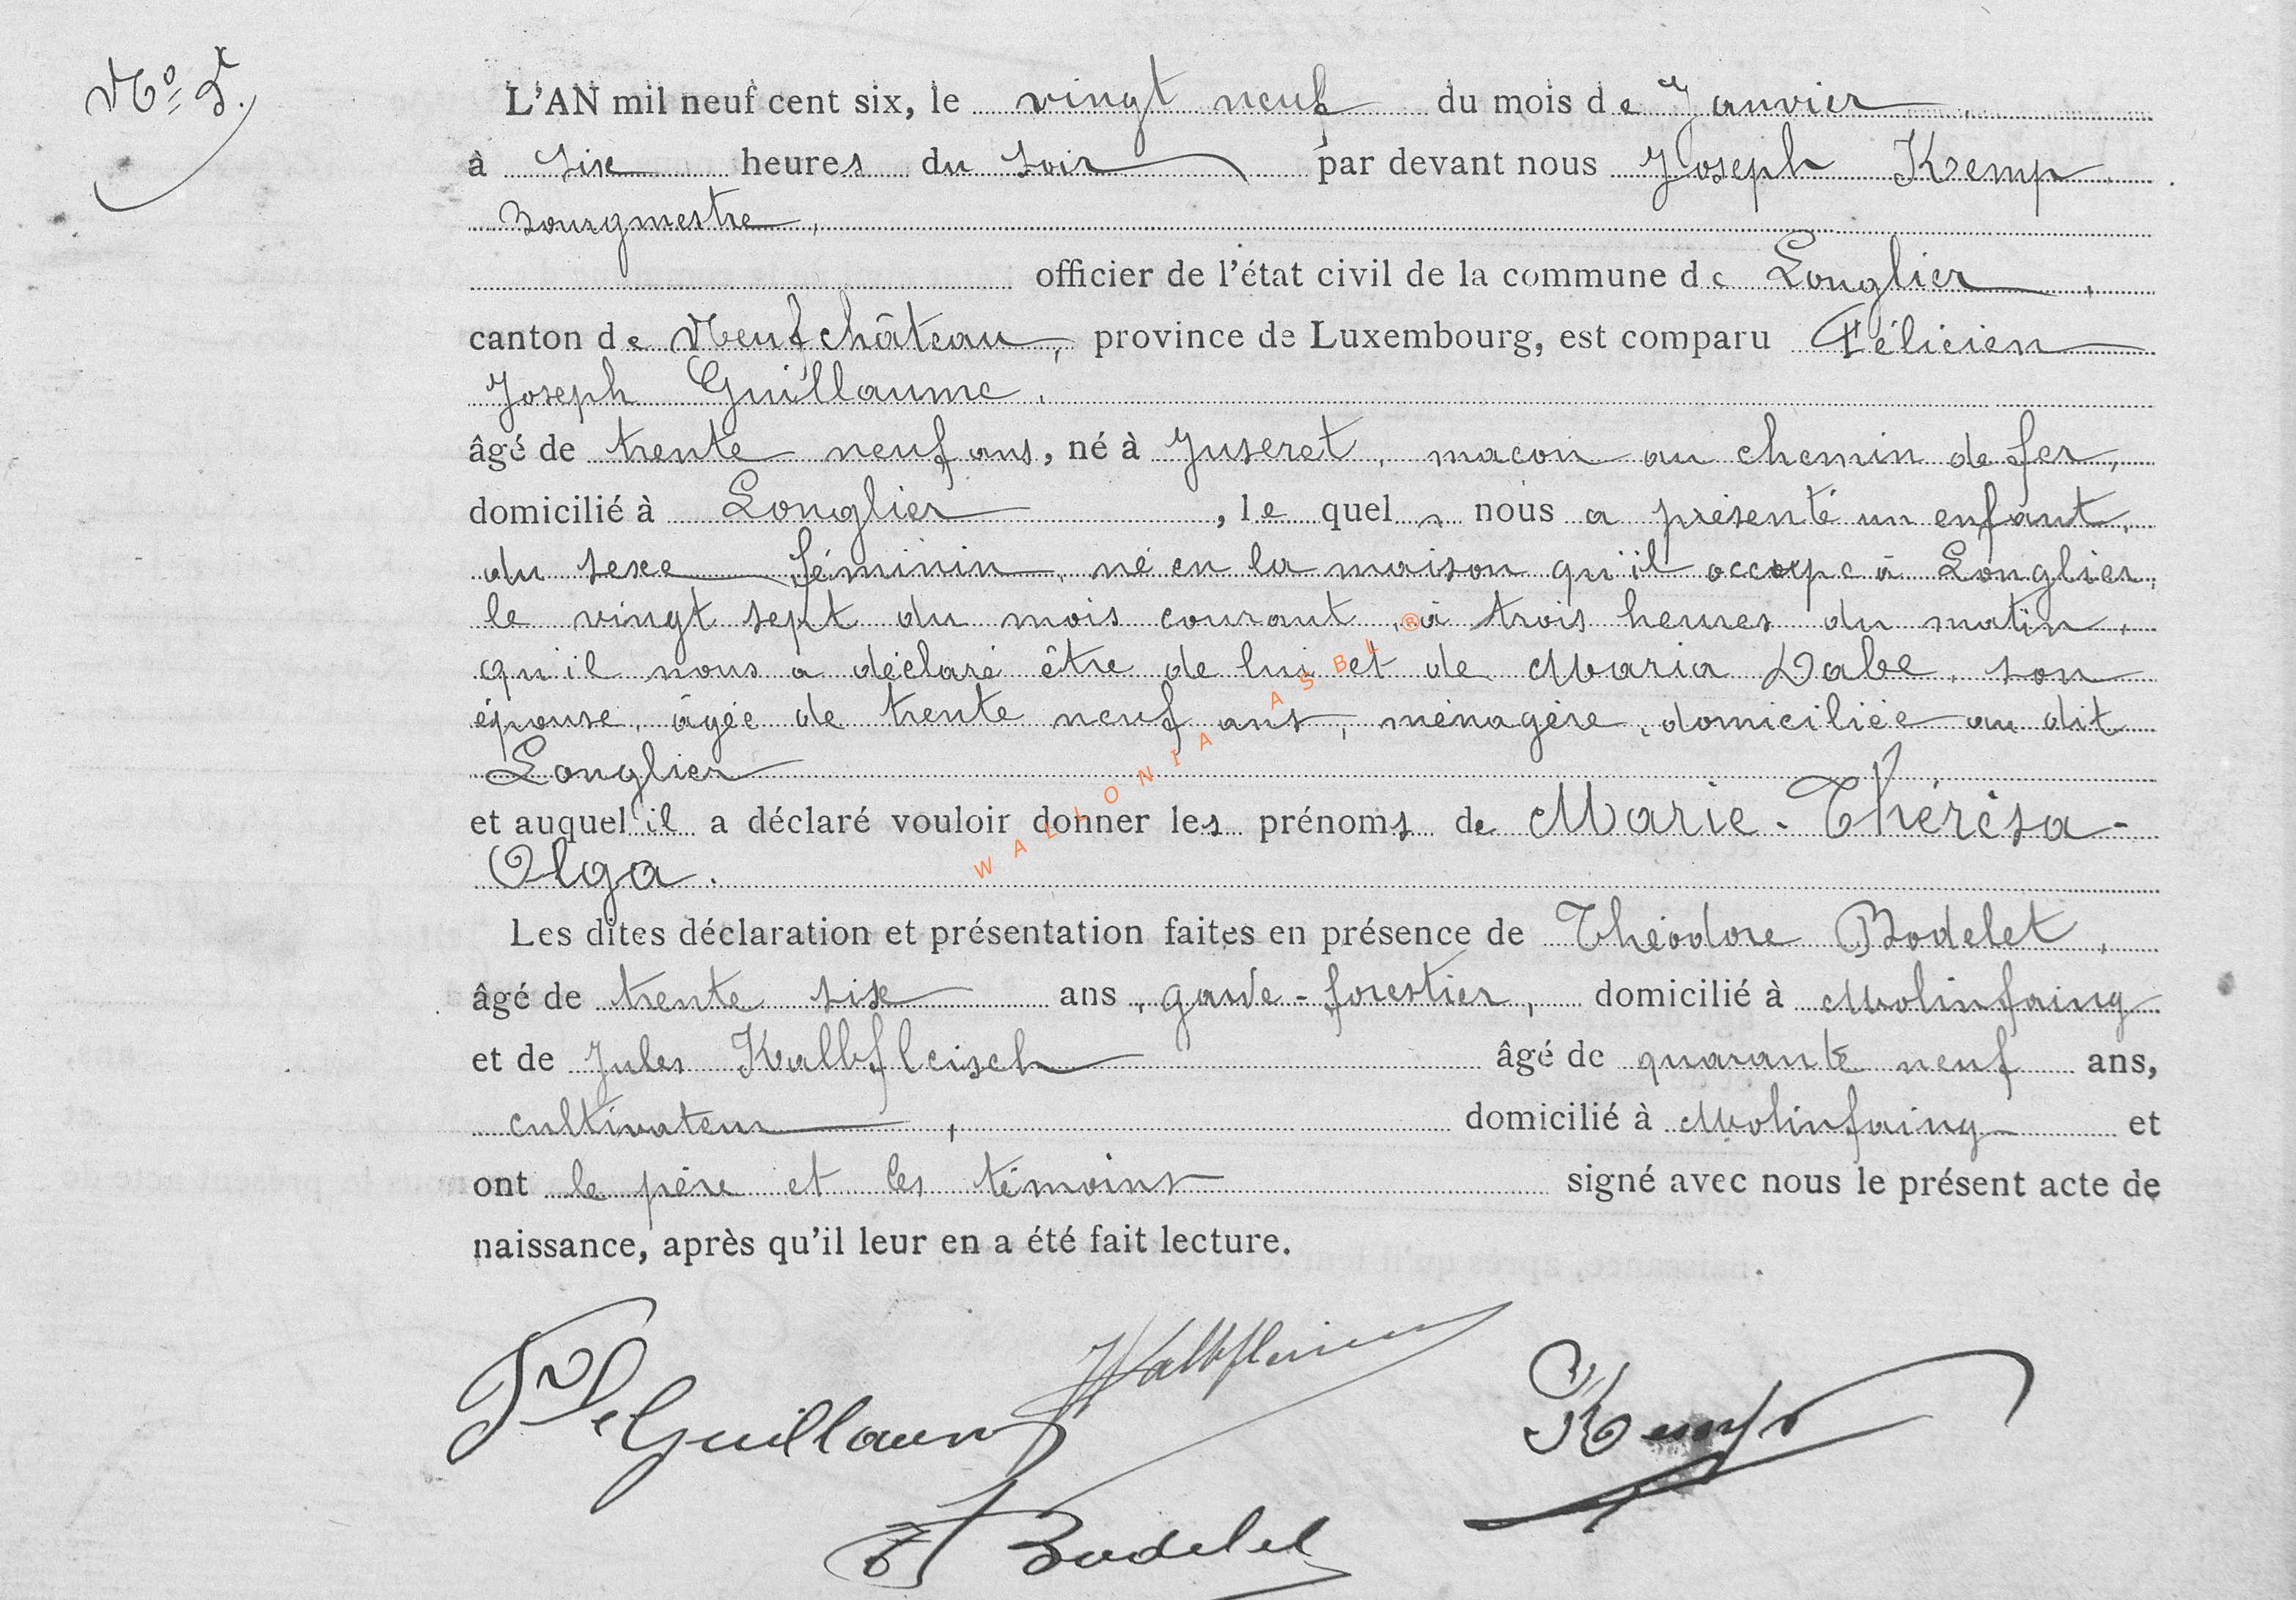 N° 2.
L'AN mil neuf cent six, le vingt neuf du mois de Janvier,
à six heures du soir par devant nous Joseph Kemp
Bourgmestre,
officier de l'état civil de la commune de Longlier,
canton de Neufchâteau, province de Luxembourg, est comparu Félicien
Joseph Guillaume,
âgé de trente neuf ans, né à Juseret, macon au chemin de fer,
domicilié à Longlier, le quel nous a présenté un enfant,
du sexe féminin, né en la maison qu'il occupe à Longlier,
le vingt sept du mois courant, à trois heures du matin,
qu'il nous a déclaré être de lui et de Maria Dabe, son
épouse, âgée de trente neuf ans, ménagère, domiciliée au dit
Longlier
et auquel il a déclaré vouloir donner les prénoms de Marie-Thérèsa-
Olga.
Les dites déclaration et présentation faites en présence de Théodore Bodelet,
âgé de trente six ans, garde-forestier, domicilié à Molinfaing
et de Jules Kalbfleisch âgé de quarante neuf ans,
cultivateur, domicilié à Molinfaing et
ont le père et les témoins signé avec nous le présent acte de
naissance, après qu'il leur en a été fait lecture.
Guillaume
Kemp
Bodelet
WALLONIA ASBL ®